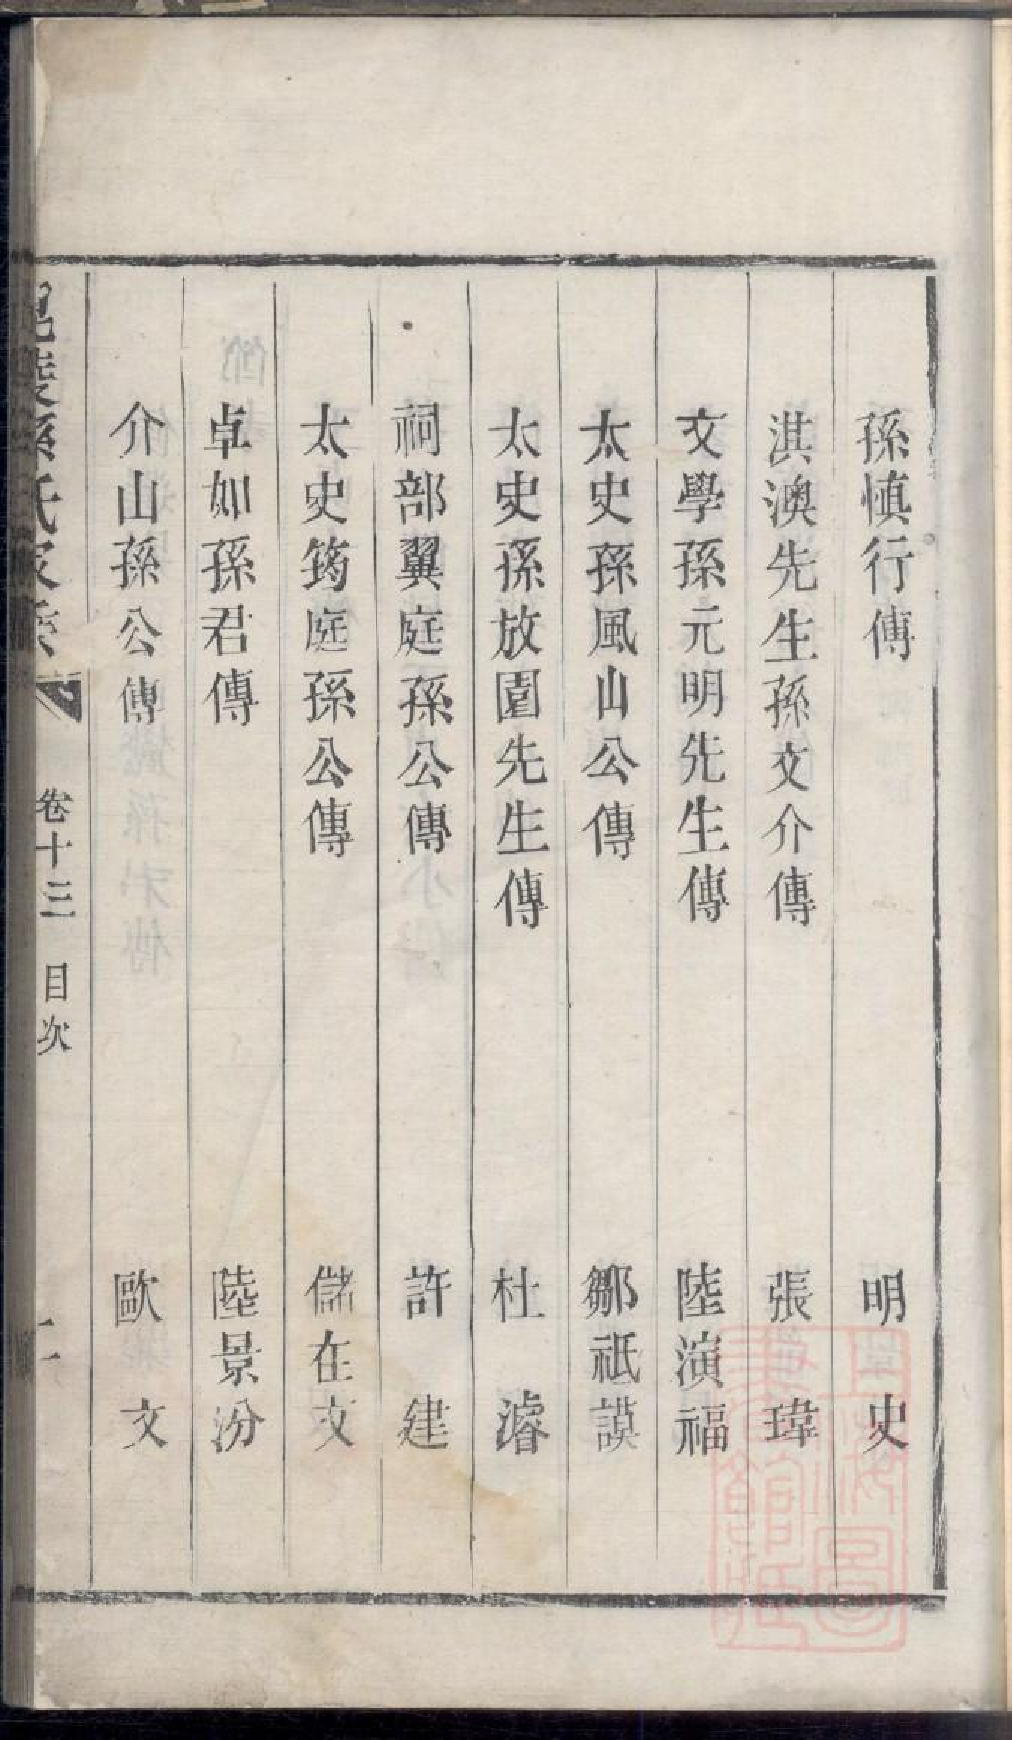 孫慎行傳 明史
淇澳先生孫文介傳 張瑋
文學孫元明先生傳 陸演福
太史孫風山公傳 鄒祇謨
太史孫放園先生傳 杜濬
祠部翼庭孫公傳 許建
太史筠庭孫公傳 儲在文
卓如孫君傳 陸景汾
介山孫公傳 歐文
毘陵孫氏家乘 卷十三 目次 一